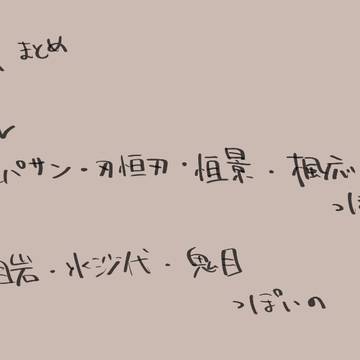 まとめ
パサン・刃恒刃・恒景・楓応
っぽ
岩・水沙代・鬼目
っぽいの